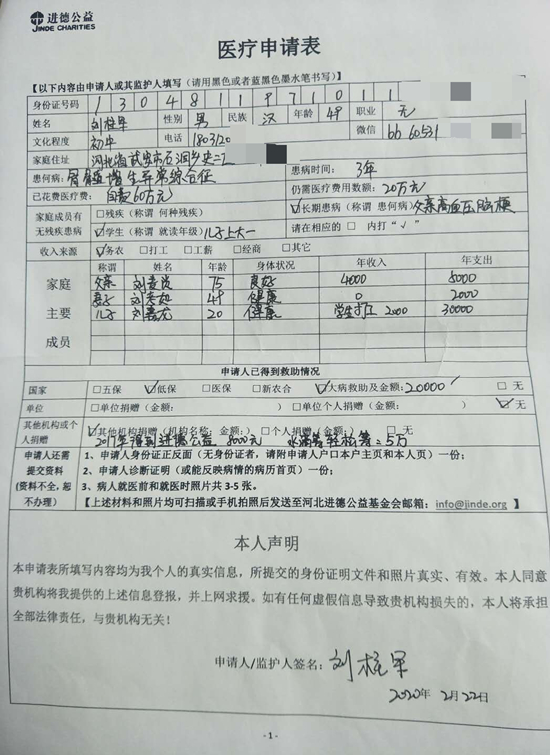 进德公益
JINDE CHARITIES
医疗申请表
【以下内容由申请人或其监护人填写（请用黑色或者蓝黑色墨水笔书写）】
身份证号码 1304811971011
姓名 刘桂军 性别 男 民族 汉 年龄 49 职业 无
文化程度 初中 电话 1803120 微信 bb60531
家庭住址 河北省武安市石洞乡史二
患何病：骨髓增生异常综合征 患病时间：3年
已花费医疗费：自费60万元 仍需医疗费用数额：20万元
家庭成员有无残疾患病 □残疾（称谓 何种残疾） ☑长期患病（称谓 患何病）父亲高血压脑梗
☑学生（称谓 就读年级）儿子上大一 请在相应的 □ 内打"√"
收入来源 ☑务农 □打工 □工薪 □经商 □其它
家庭主要成员 称谓 姓名 年龄 身体状况 年收入 年支出
父亲 刘 75 良好 4000 8000
妻子 刘 49 健康 0 2000
儿子 刘 龙 20 健康 学生打工 2000 30000
申请人已得到救助情况
国家 □五保 ☑低保 □医保 □新农合 ☑大病救助及金额：20000 □无
单位 □单位捐赠（金额： ） □单位个人捐赠（金额： ） ☑无
其他机构或个人捐赠 ☑其他机构捐赠（机构名称：金额：） □个人捐赠（金额： ） □无
2017年得到进德公益 8000元 水滴筹轻松筹：5万
申请人还需提交资料（资料不全，恕不办理）
1、申请人身份证正反面（无身份证者，请附申请人户口本户主页和本人页）一份；
2、申请人诊断证明（或能反映病情的病历首页）一份；
3、病人就医前和就医时照片共 3-5 张。
【上述材料和照片均可扫描或手机拍照后发送至河北进德公益基金会邮箱：info@jinde.org】
本人声明
本申请表所填写内容均为我个人的真实信息，所提交的身份证明文件和照片真实、有效。本人同意
贵机构将我提供的上述信息登报，并上网求援。如有任何虚假信息导致贵机构损失的，本人将承担
全部法律责任，与贵机构无关！
申请人/监护人签名：刘桂军
2020年 2月22日
- 1 -